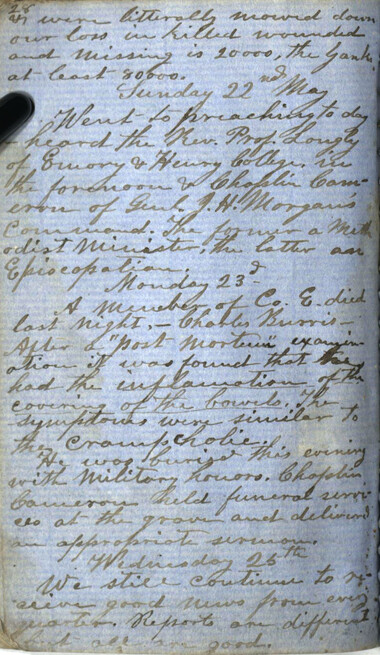 28
were litterally mowed down
our loss in killed wounded
and missing is 20000, the Yanks
at least 30000.
Sunday 22nd May
Went to preaching to day
heard the Rev. Prof. Longly
of Emory & Henry College, in
the forenoon & Chaplin Cam-
eron of Genl J. H. Morgans
Command. The former a Meth
odist Minister, the latter an
Episcopalian.
Monday 23d
A Member of Co. E. died
last night, — Charles Burris —
After a "post mortem examin-
ation it was found that he
had the inflamation of the
covering of the bowels. The
symptoms were similar to
the Crampcholic.
He was buried this evening
with Military honors. Chaplin
Cameron held funeral servi-
ces at the grave and delivered
an appropriate sermon.
Wednesday 25th
We still continue to re-
ceive good news from every
quarter. Reports are different
but all are good.